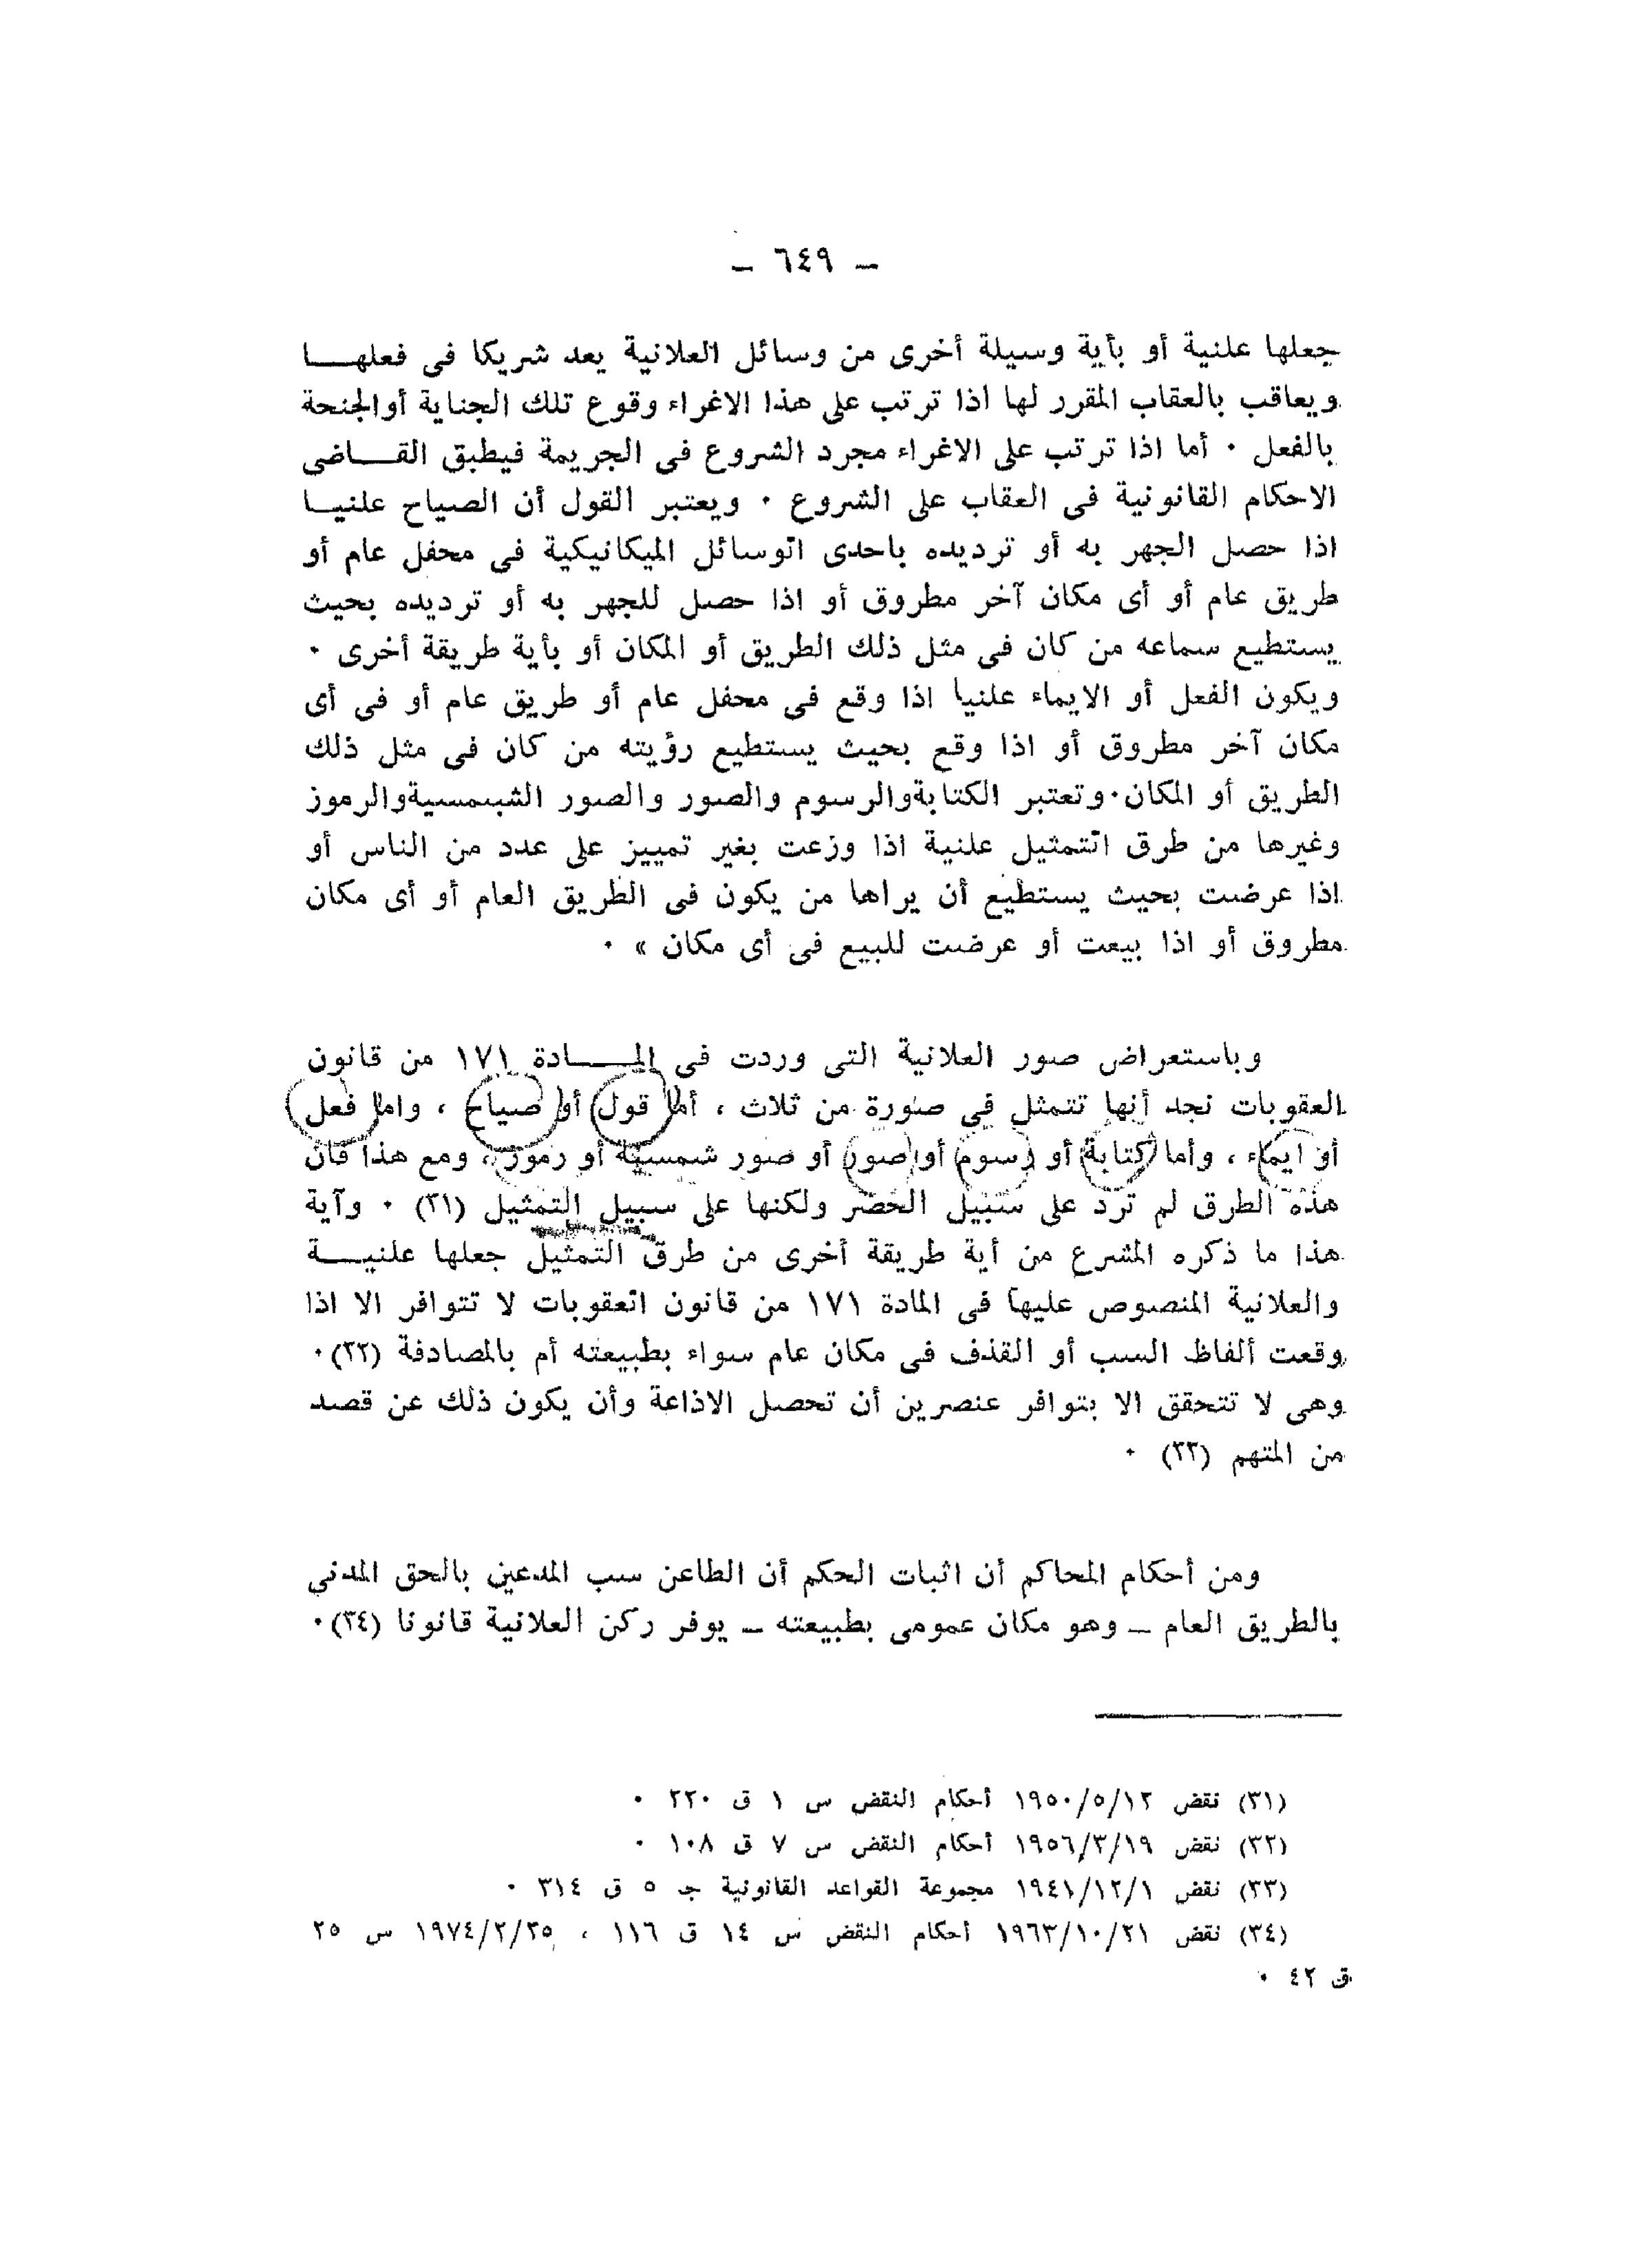 – ٦٤٩ –
جعلها علنية أو بأية وسيلة أخرى من وسائل العلانية يعد شريكا فى فعلهـــا
ويعاقب بالعقاب المقرر لها اذا ترتب على هذا الاغراء وقوع تلك الجناية أوالجنحة
بالفعل ٠ أما اذا ترتب على الاغراء مجرد الشروع فى الجريمة فيطبق القـــاضى
الاحكام القانونية فى العقاب على الشروع ٠ ويعتبر القول أن الصياح علنيـا
اذا حصل الجهر به أو ترديده باحدى الوسائل الميكانيكية فى محفل عام أو
طريق عام أو أى مكان آخر مطروق أو اذا حصل للجهر به أو ترديده بحيث
يستطيع سماعه من كان فى مثل ذلك الطريق أو المكان أو بأية طريقة أخرى ٠
ويكون الفعل أو الايماء علنيا اذا وقع فى محفل عام أو طريق عام أو فى أى
مكان آخر مطروق أو اذا وقع بحيث يستطيع رؤيته من كان فى مثل ذلك
الطريق أو المكان٠وتعتبر الكتابةوالرسوم والصور والصور الشمسيةوالرموز
وغيرها من طرق التمثيل علنية اذا وزعت بغير تمييز على عدد من الناس أو
اذا عرضت بحيث يستطيع أن يراها من يكون فى الطريق العام أو أى مكان
مطروق أو اذا بيعت أو عرضت للبيع فى أى مكان » ٠
وباستعراض صور العلانية التى وردت فى المـــادة ١٧١ من قانون
العقوبات نجد أنها تتمثل فى صورة من ثلاث ، أما قول أو صياح ، واما فعل
أو ايماء ، وأما كتابة أو رسوم أو صور أو صور شمسية أو رموز ، ومع هذا فان
هذه الطرق لم ترد على سبيل الحصر ولكنها على سبيل التمثيل (٣١) ٠ وآية
هذا ما ذكره المشرع من أية طريقة أخرى من طرق التمثيل جعلها علنيـــة
والعلانية المنصوص عليها فى المادة ١٧١ من قانون العقوبات لا تتوافر الا اذا
وقعت ألفاظ السب أو القذف فى مكان عام سواء بطبيعته أم بالمصادفة (٣٢)٠
وهى لا تتحقق الا بتوافر عنصرين أن تحصل الاذاعة وأن يكون ذلك عن قصد
من المتهم (٣٣) ٠
ومن أحكام المحاكم أن اثبات الحكم أن الطاعن سب المدعين بالحق المدنى
بالطريق العام – وهو مكان عمومى بطبيعته – يوفر ركن العلانية قانونا (٣٤)٠
(٣١) نقض ١٩٥٠/٥/١٢ أحكام النقض س ١ ق ٢٢٠ ٠
(٣٢) نقض ١٩٥٦/٣/١٩ أحكام النقض س ٧ ق ١٠٨ ٠
(٣٣) نقض ١٩٤١/١٢/١ مجموعة القواعد القانونية جـ ٥ ق ٣١٤ ٠
(٣٤) نقض ١٩٦٣/١٠/٢١ أحكام النقض س ١٤ ق ١١٦ ، ١٩٧٤/٢/٢٥ س ٢٥
ق ٤٢ ٠